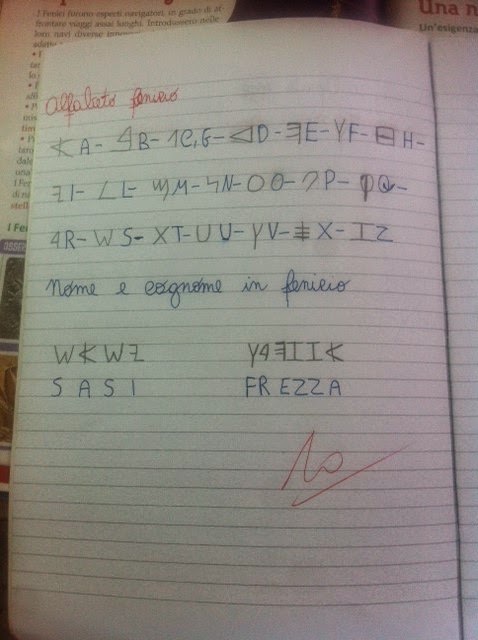 I Fenici furono esperti navigatori, in grado di af-
frontare viaggi assai lunghi. Introdussero nelle
loro navi diverse
Una n
Un'esigenza
alfabeto fenicio
𐤀 A- 𐤁 B- 𐤂 C,G- 𐤃 D- 𐤄 E- 𐤅 F- 𐤇 H-
𐤉 I- 𐤋 L- 𐤌 M- 𐤍 N- 𐤏 O- 𐤐 P- 𐤒 Q-
𐤓 R- 𐤔 S- X T- U U- 𐤅 V- 𐤎 X- 𐤆 Z
Nome e cognome in fenicio
𐤔𐤀𐤔𐤉 𐤅𐤓𐤄𐤆𐤆𐤀
SASI FREZZA
10